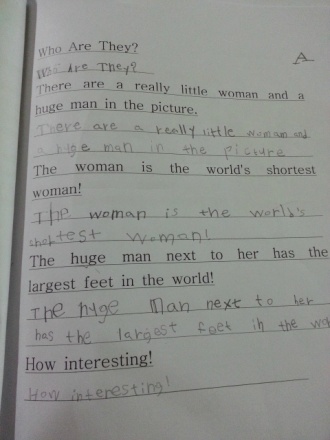 Who Are They?
A
Who Are They?
There are a really little woman and a
huge man in the picture.
There are a really little woman and
a huge man in the picture
The woman is the world's shortest
woman!
The woman is the world's
shortest woman!
The huge man next to her has the
largest feet in the world!
The huge Man next to her
has the largest feet in the wo
How interesting!
How interesting!